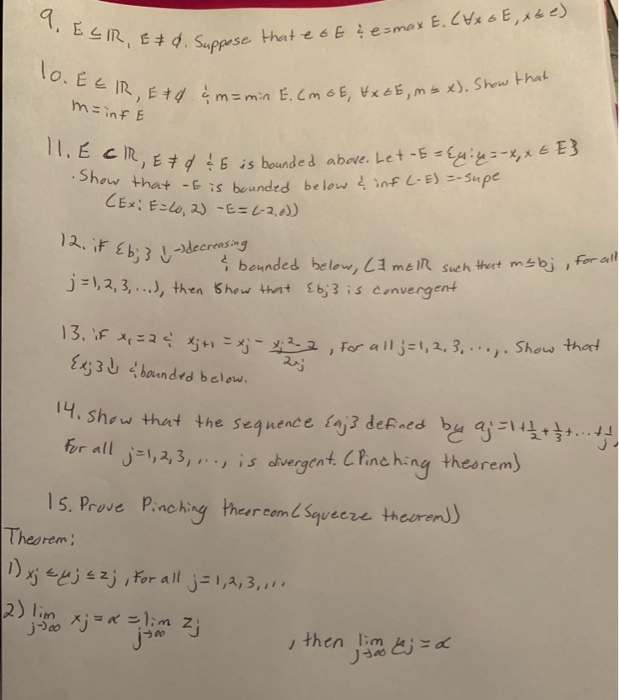 9. E ⊆ ℝ, E ≠ ∅. Suppose that e ∈ E & e = max E. (∀x ∈ E, x ≤ e)
10. E ⊆ ℝ, E ≠ ∅ & m = min E. (m ∈ E, ∀x ∈ E, m ≤ x). Show that
m = inf E
11. E ⊂ ℝ, E ≠ ∅ & E is bounded above. Let -E = {y : y = -x, x ∈ E}
. Show that -E is bounded below & inf (-E) = -sup e
(Ex: E = (0, 2) -E = (-2, 0))
12. if {bj} ↓ → decreasing
& bounded below, (∃ m ∈ ℝ such that m ≤ bj, for all
j = 1, 2, 3, ...), then show that {bj} is convergent
13. if x₁ = 2 & xj+1 = xj - (xj² - 2)/(2xj), for all j = 1, 2, 3, ..., . Show that
{xj} ↓ & bounded below.
14. Show that the sequence {aj} defined by aj = 1 + 1/2 + 1/3 + ... + 1/j,
for all j = 1, 2, 3, ..., is divergent. (Pinching theorem)
15. Prove Pinching theorcom (Squeeze theorem))
Theorem:
1) xj ≤ yj ≤ zj, For all j = 1, 2, 3, ...
2) lim j→∞ xj = α = lim j→∞ zj
, then lim j→∞ yj = α